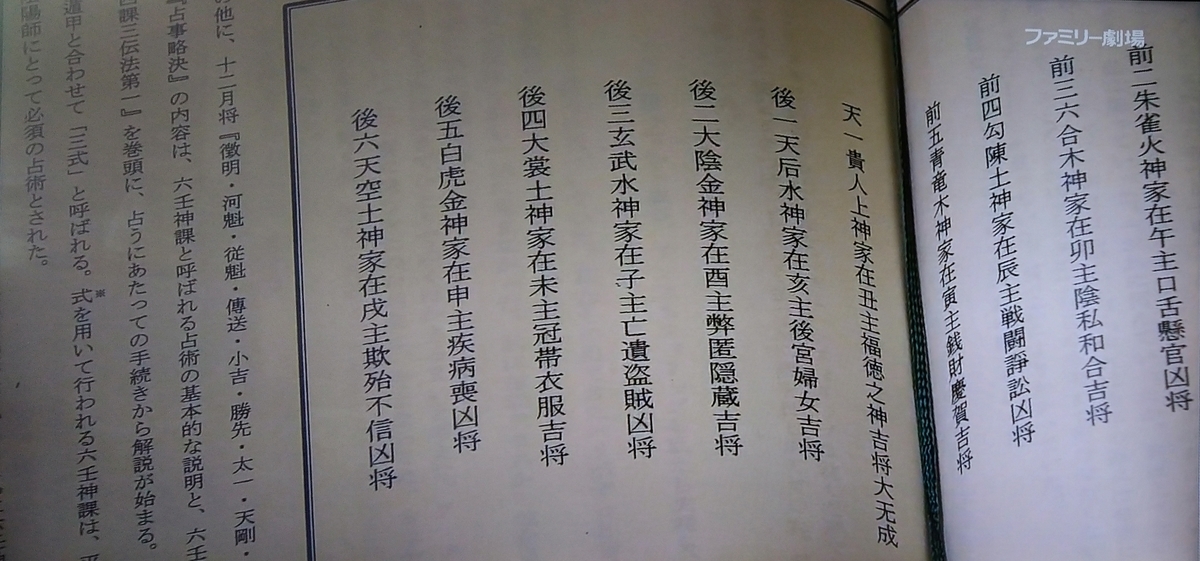 ファミリー劇場
前二朱雀火神家在午主口舌懸官凶将
前三六合木神家在卯主陰私和合吉将
前四勾陳土神家在辰主戦闘諍訟凶将
前五青竜木神家在寅主銭財慶賀吉将
天一貴人上神家在丑主福徳之神吉将大无成
後一天后水神家在亥主後宮婦女吉将
後二大陰金神家在酉主弊匿隠蔵吉将
後三玄武水神家在子主亡遺盗賊凶将
後四大裳土神家在未主冠帯衣服吉将
後五白虎金神家在申主疾病喪凶将
後六天空土神家在戌主欺殆不信凶将
の他に、十二月将『徴明・河魁・従魁・傳送・小吉・勝先・太一・天剛・
『占事略決』の内容は、六壬神課と呼ばれる占術の基本的な説明と、六壬
課三伝法第一』を巻頭に、占うにあたっての手続きから解説が始まる。
遁甲と合わせて「三式」と呼ばれる。式※を用いて行われる六壬神課は、平
陽師にとって必須の占術とされた。